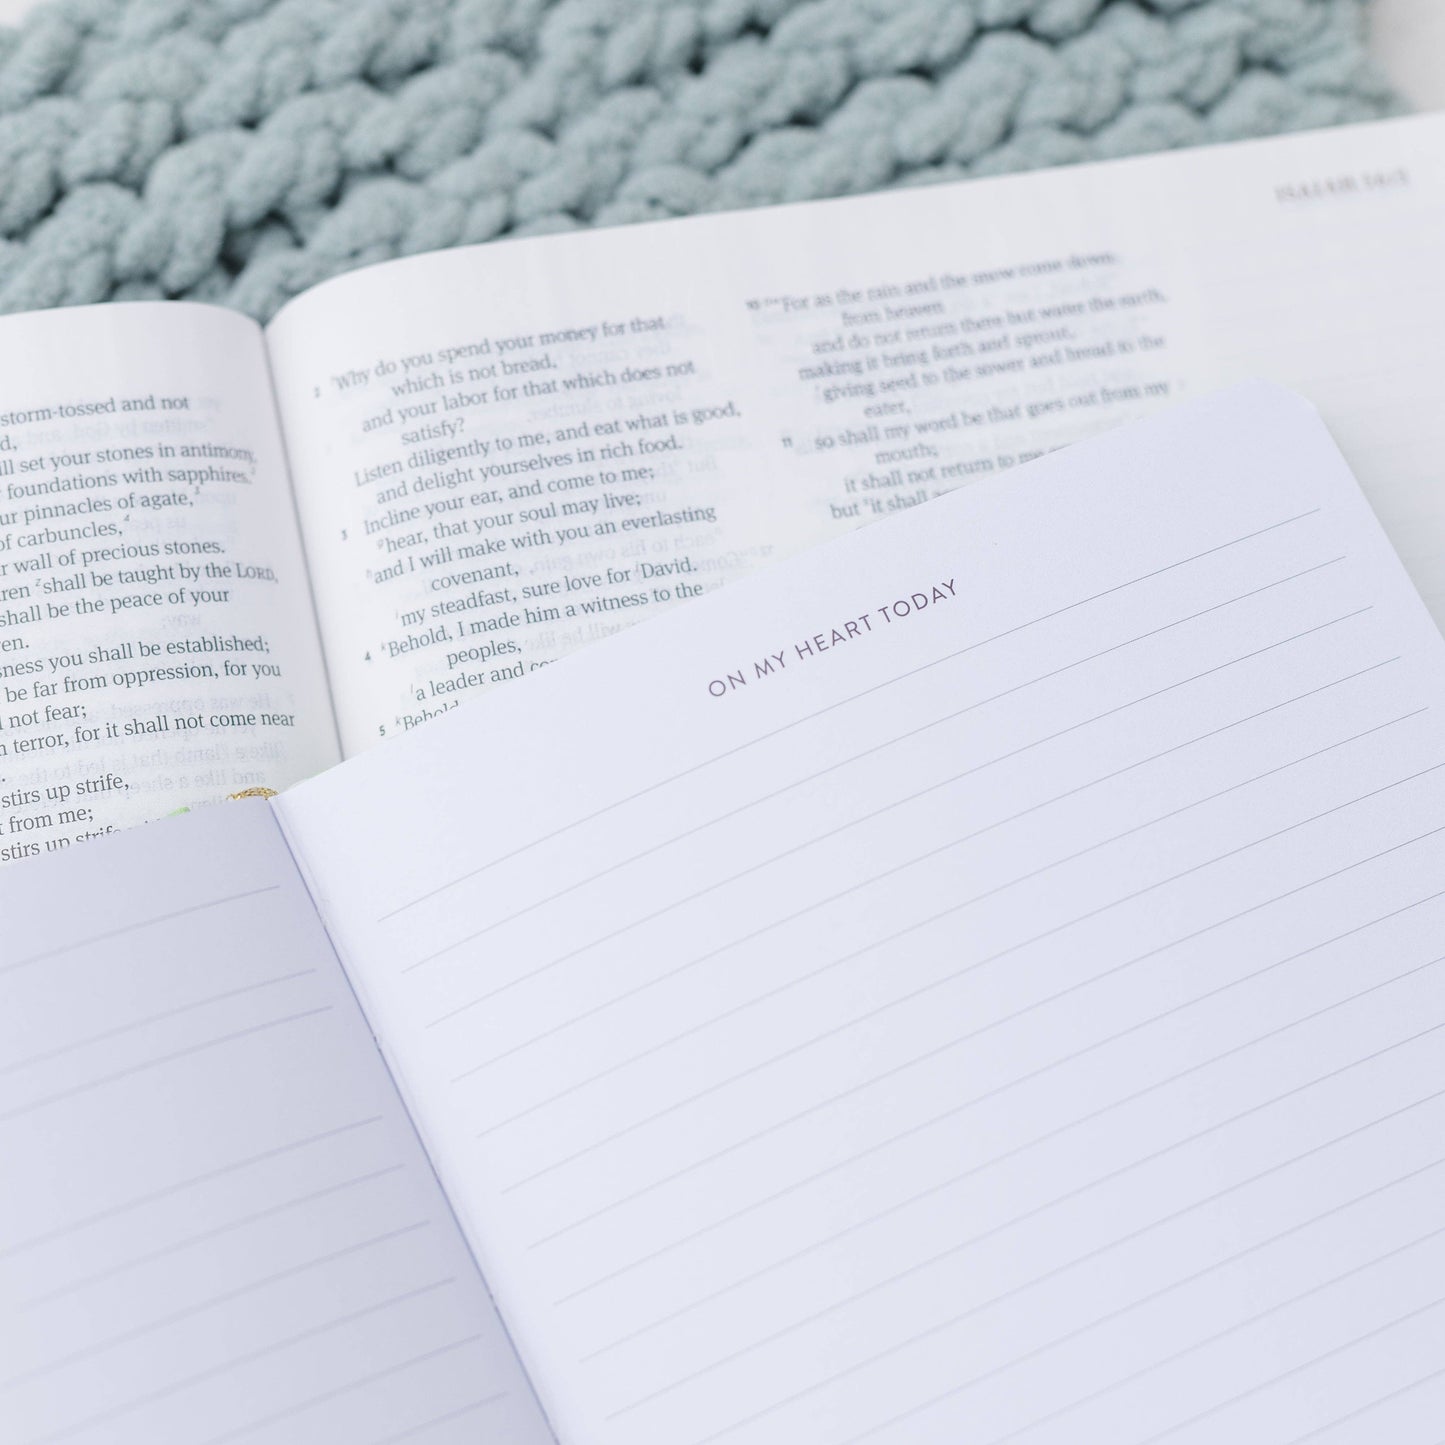 storm-tossed and not
d,
ll set your stones in antimony,
foundations with sapphires.2
ur pinnacles of agate,3
of carbuncles,4
r wall of precious stones.
ren zshall be taught by the LORD,
shall be the peace of your
en.
sness you shall be established;
be far from oppression, for you
l not fear;
n terror, for it shall not come near
.
stirs up strife,
t from me;
stirs up strife
2 Why do you spend your money for that
which is not bread,
and your labor for that which does not
satisfy?
Listen diligently to me, and eat what is good,
and delight yourselves in rich food.
3 Incline your ear, and come to me;
ghear, that your soul may live;
hand I will make with you an everlasting
covenant,
imy steadfast, sure love for jDavid.
4 kBehold, I made him a witness to the
peoples,
la leader and co
5 kBehold
10 For as the rain and the snow come down
from heaven
and do not return there but water the earth,
making it bring forth and sprout,
giving seed to the sower and bread to the
eater,
11 so shall my word be that goes out from my
mouth;
it shall not return to me
but it shall
ON MY HEART TODAY